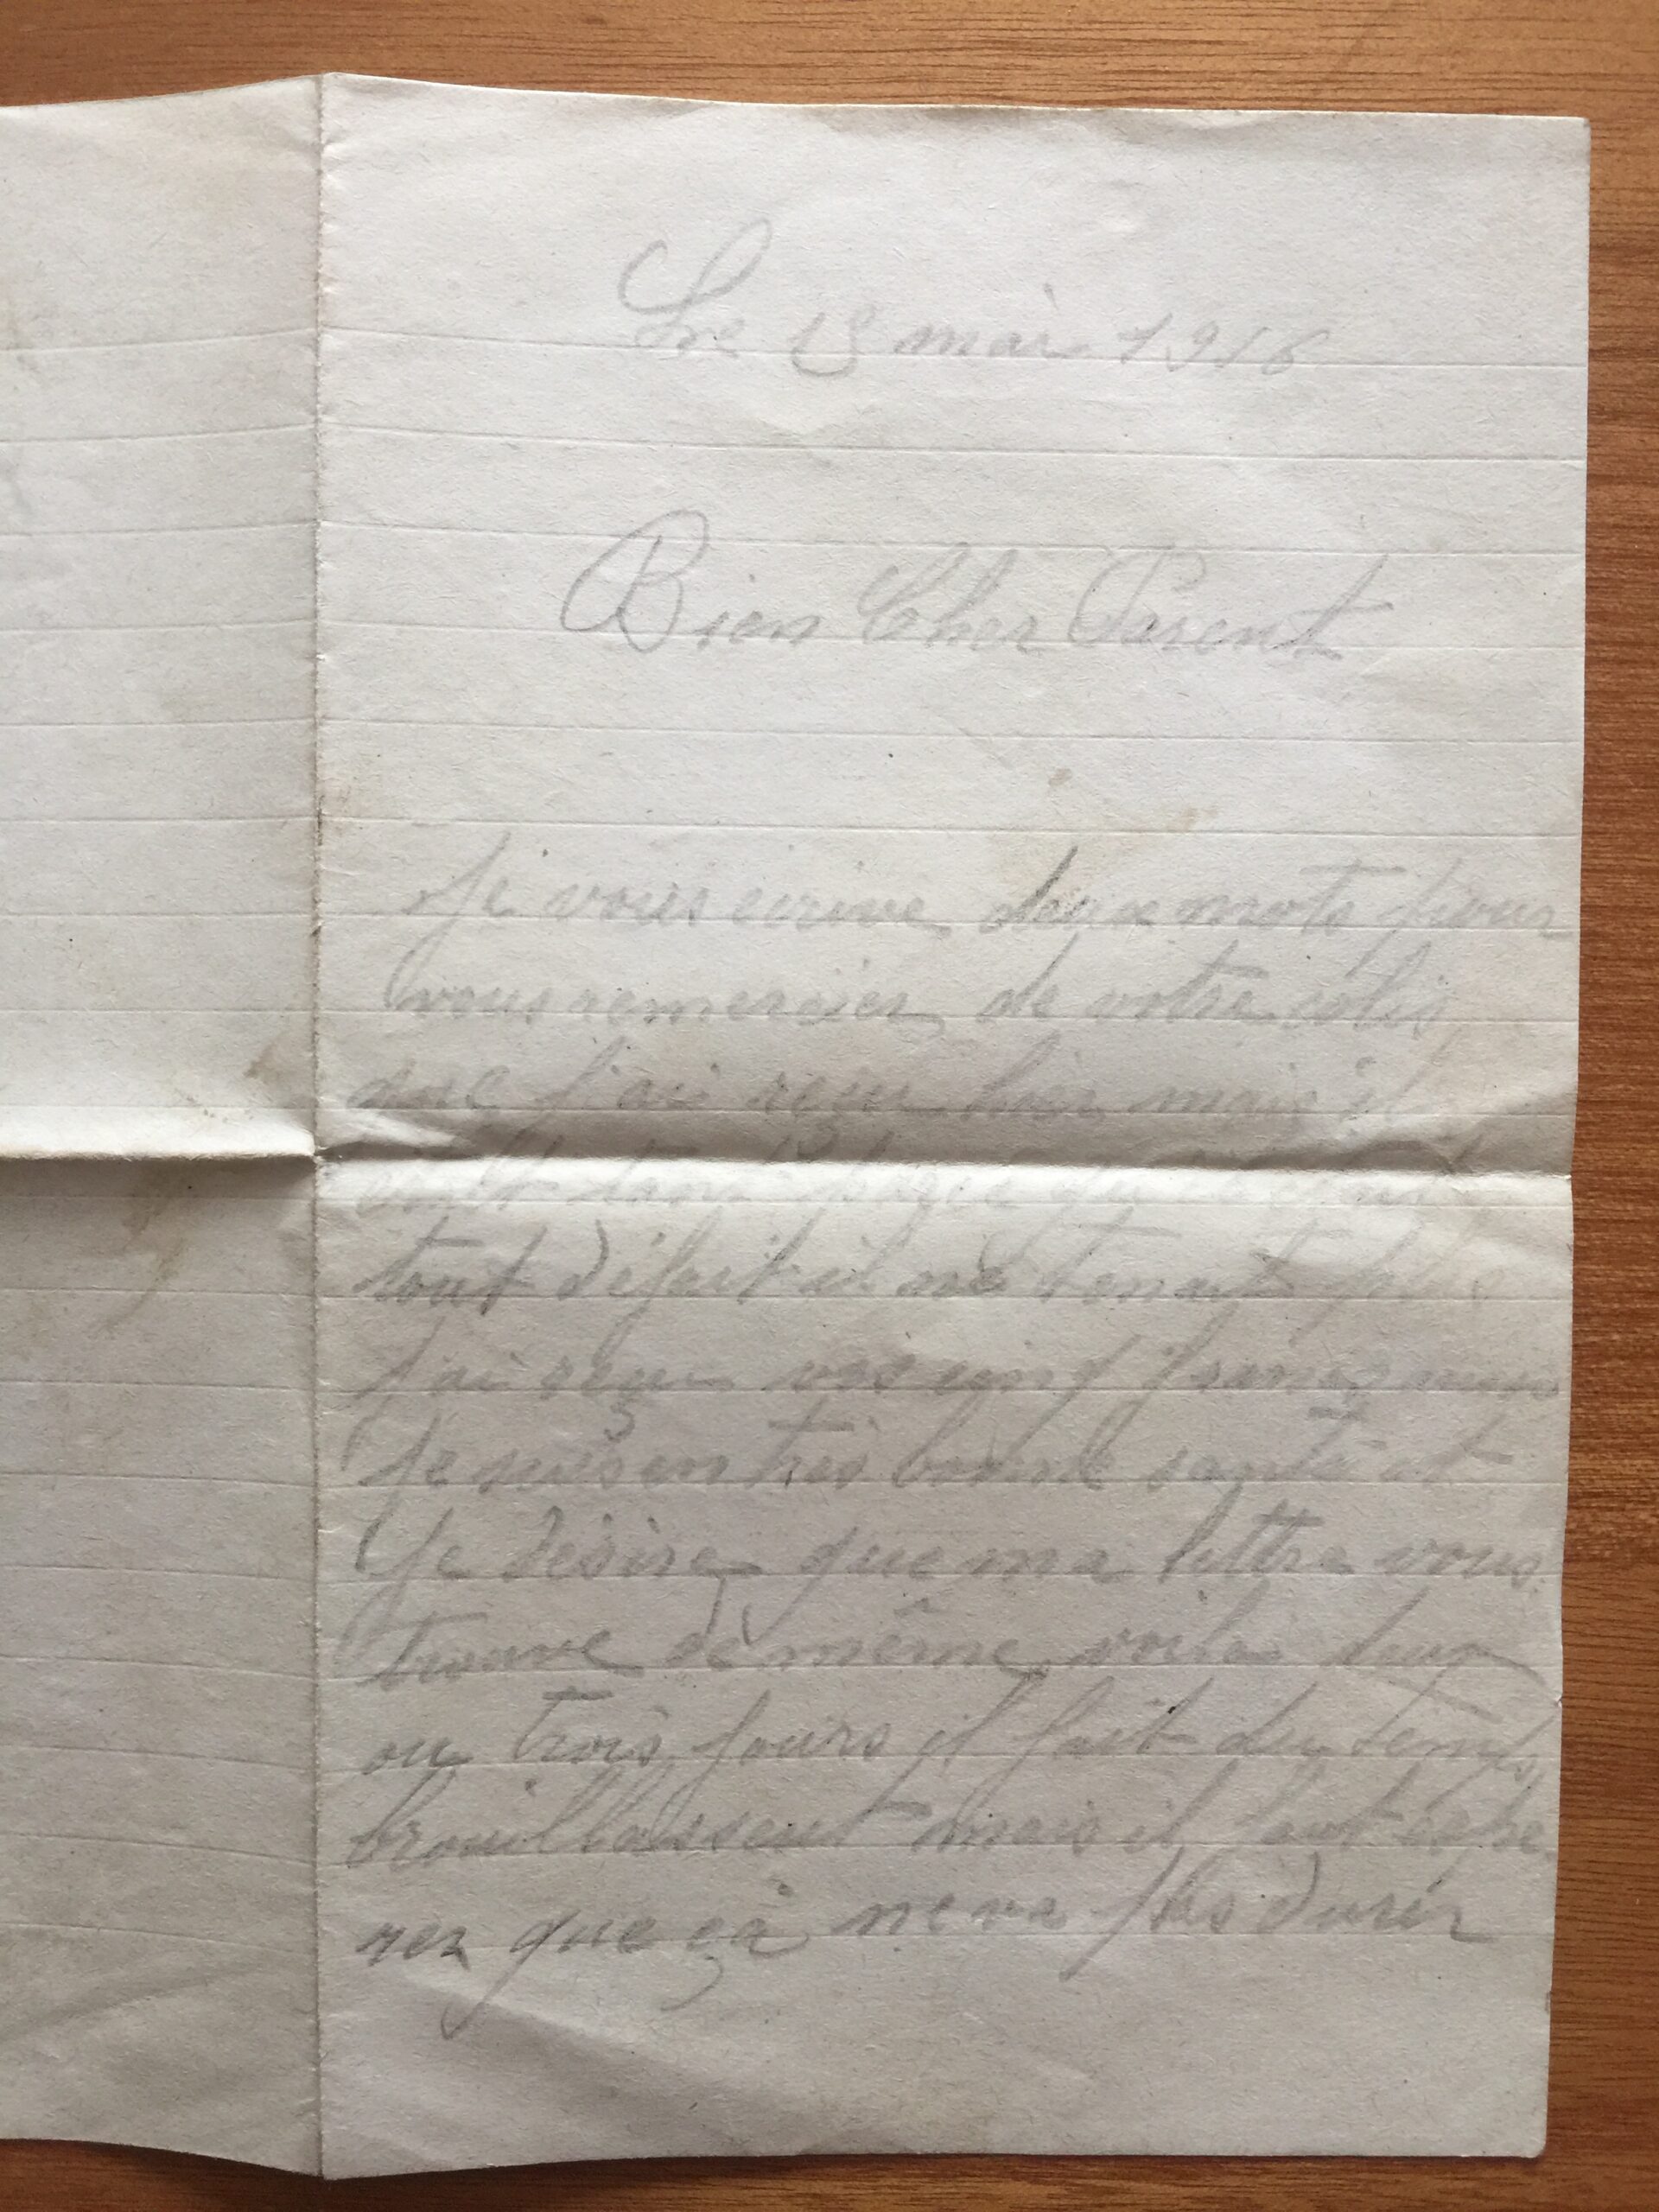 Le 18 mai 1916
Bien Cher Parent
Je vous écrive deux mots pour
vous remercier de votre colis
que j'ai reçu hier mais il
tout défait il ne tenait plus
j'ai reçu vos cinq francs
Je suis en très bonne santé et
Je désire que ma lettre vous
trouve de même voila deux
ou trois jours il fait du temps
brouillassent mais il faut espe
rez que çà ne va pas durér